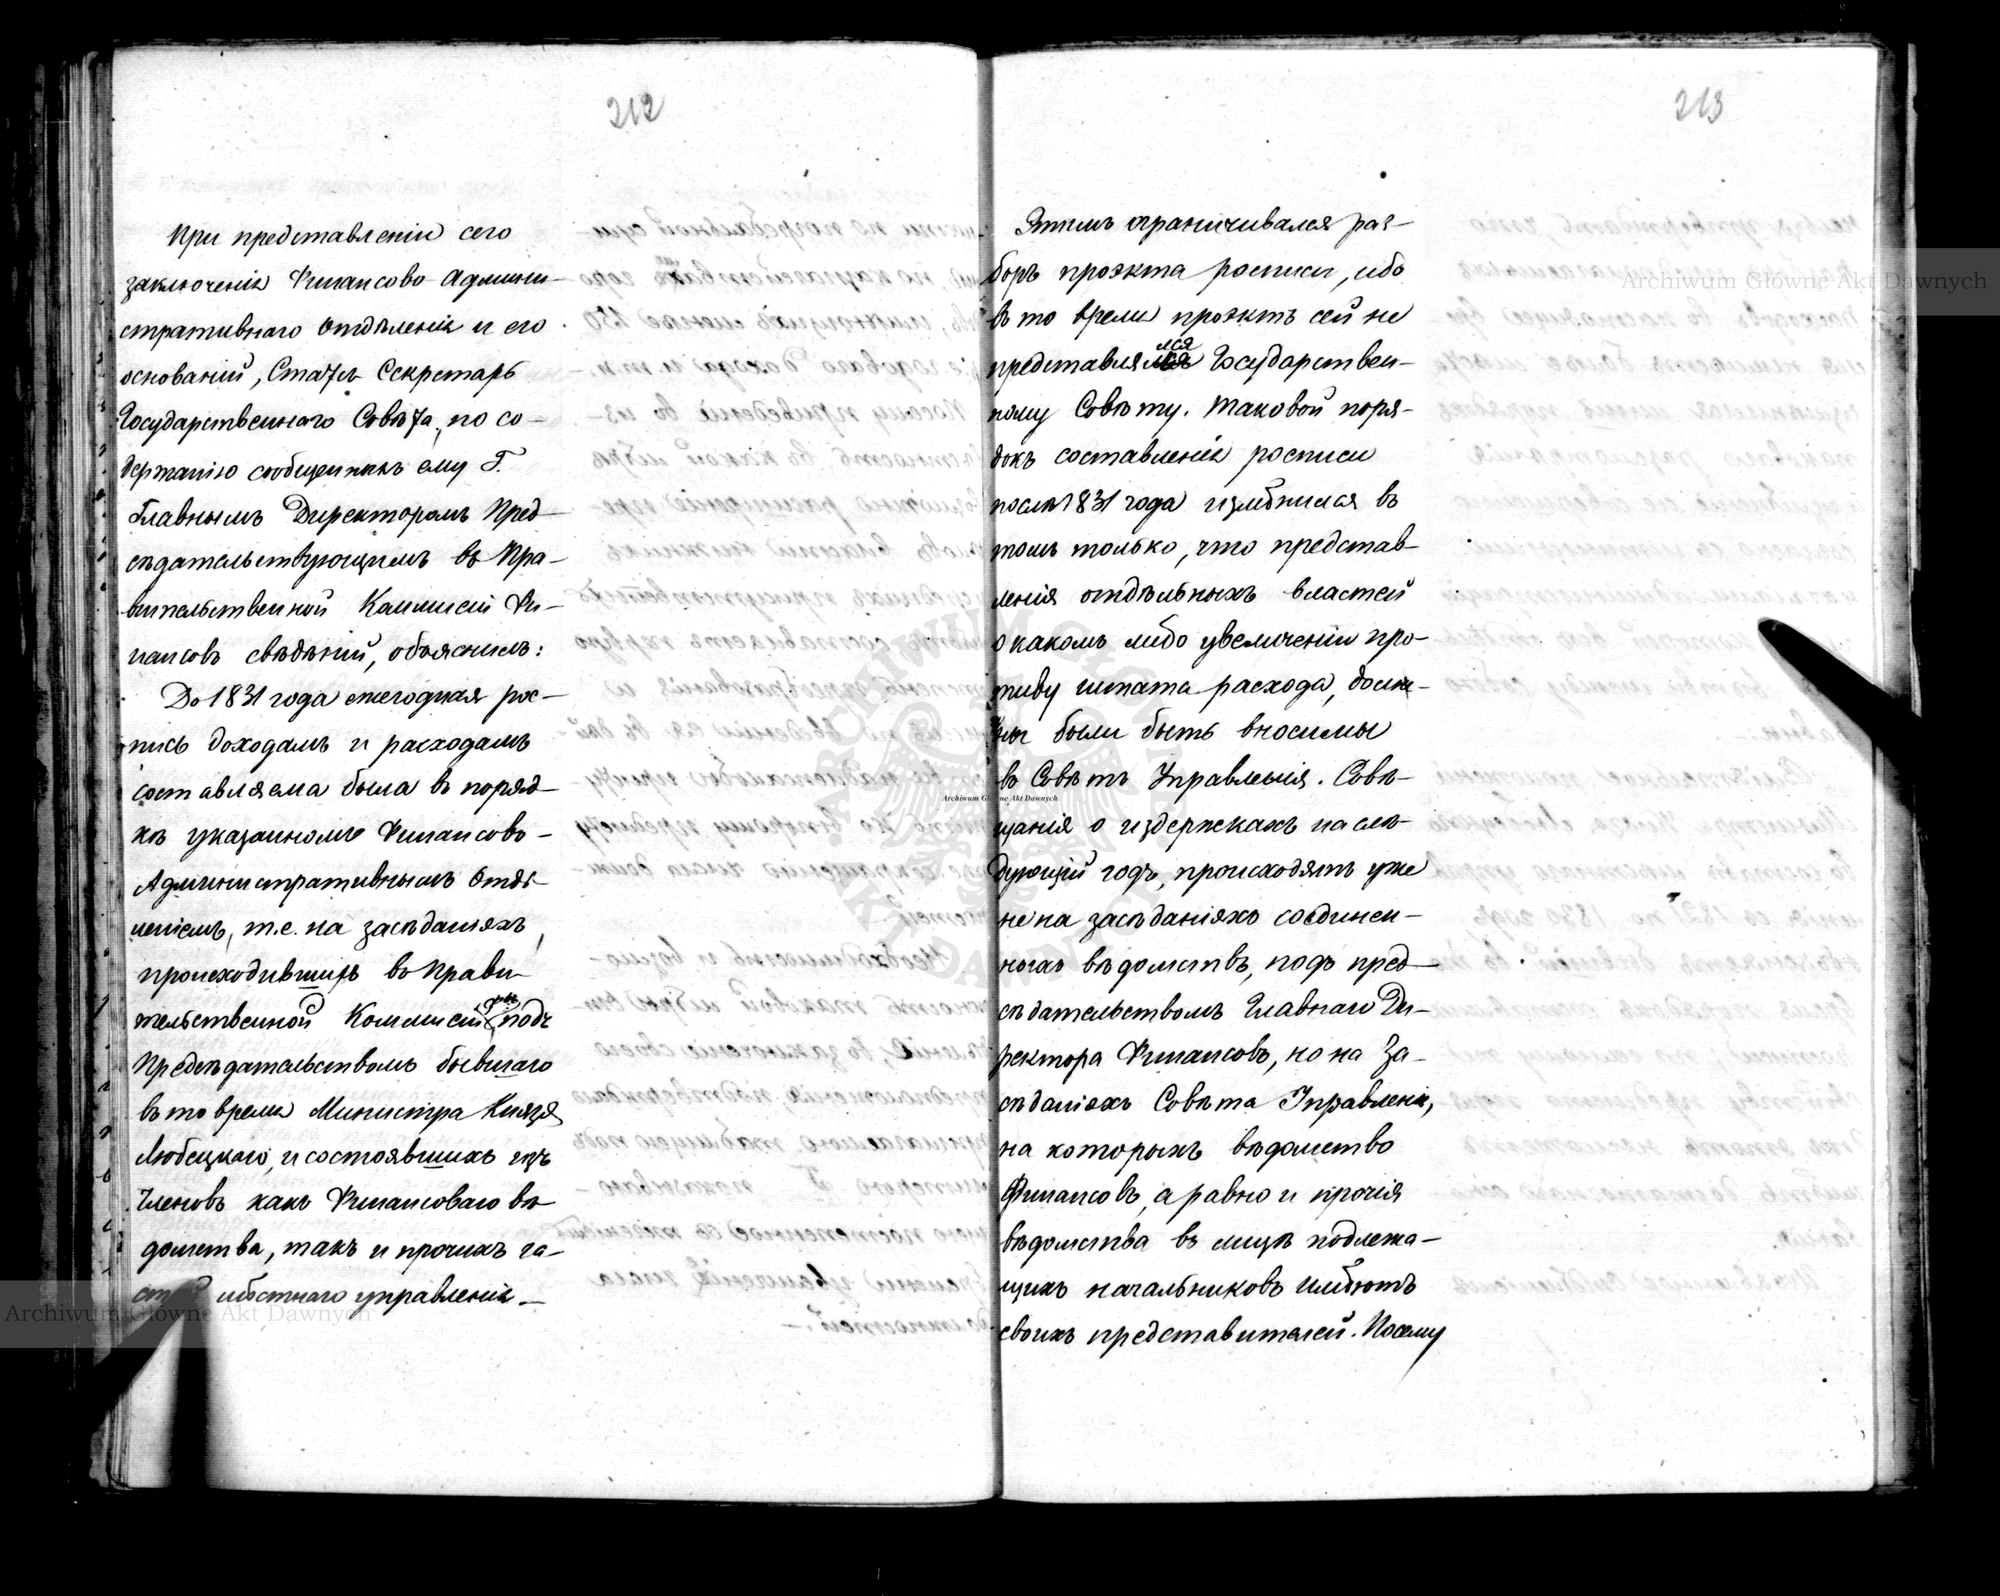 212
При представленіи сего
заключенія Финансово-Админи-
стративнаго Отдѣленія и его
основаній, Статсъ Секретарь
Государственнаго Совѣта, по со-
держанію сообщенныхъ ему Г.
Главнымъ Директоромъ Пред-
сѣдательствующимъ въ Пра-
вительственной Коммисіи Фи-
нансовъ свѣдѣній, объяснилъ:
До 1831 года ежегодная рос-
пись доходамъ и расходамъ
составляема была въ поряд-
кѣ указанномъ Финансово-
Административнымъ Отдѣ-
леніемъ, т.е. на засѣданіяхъ
происходившихъ въ Прави-
тельственной Коммисіи подъ
Предсѣдательствомъ бывшаго
въ то время Министра Князя
Любецкаго, и состоявшихъ изъ
Членовъ какъ Финансоваго вѣ-
домства, такъ и прочихъ ча-
стей мѣстнаго управленія. —
213
Этимъ ограничивался раз-
боръ проэкта росписи, ибо
въ то время проэктъ сей не
представлялся Государствен-
ному Совѣту. Таковой поря-
докъ составленія росписи
послѣ 1831 года измѣнился въ
томъ только, что представ-
ленія отдѣльныхъ властей
о какомъ либо увеличеніи про-
тиву штата расхода, долж-
ны были быть вносимы
въ Совѣтъ Управленія. Совѣ-
щанія о издержкахъ на слѣ-
дующій годъ, происходятъ уже
не на засѣданіяхъ соединен-
ныхъ вѣдомствъ, подъ пред-
сѣдательствомъ Главнаго Ди-
ректора Финансовъ, но на За-
сѣданіяхъ Совѣта Управленія,
на которыхъ вѣдомство
Финансовъ, а равно и прочія
вѣдомства въ лицѣ подлежа-
щихъ начальниковъ имѣютъ
своихъ представителей. Посему
Archiwum Główne Akt Dawnych
Archiwum Główne Akt Dawnych
Archiwum Główne Akt Dawnych